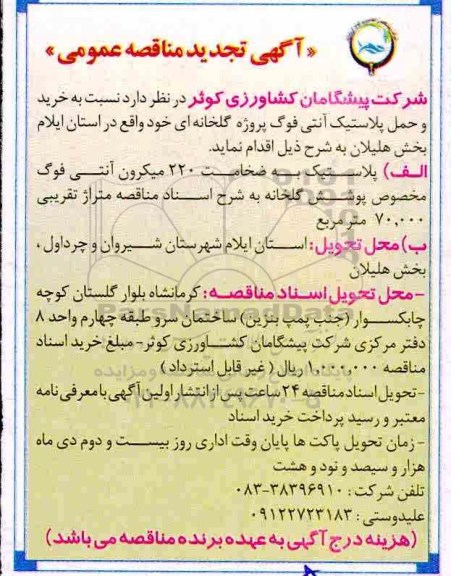 « آگهی تجدید مناقصه عمومی »
شرکت پیشگامان کشاورزی کوثر در نظر دارد نسبت به خرید
و حمل پلاستیک آنتی فوگ پروژه گلخانه ای خود واقع در استان ایلام
بخش هلیلان به شرح ذیل اقدام نماید.
الف) پلاستیک به ضخامت ۲۲۰ میکرون آنتی فوگ
مخصوص پوشش گلخانه به شرح اسناد مناقصه متراژ تقریبی
۷۰,۰۰۰ متر مربع
ب) محل تحویل: استان ایلام شهرستان شیروان و چرداول،
بخش هلیلان
-محل تحویل اسناد مناقصه: کرمانشاه بلوار گلستان کوچه
چابکسوار (جنب پمپ بنزین) ساختمان سرو طبقه چهارم واحد ۸
دفتر مرکزی شرکت پیشگامان کشاورزی کوثر- مبلغ خرید اسناد
مناقصه ۱,۰۰۰,۰۰۰ ریال ( غیر قابل استرداد )
-تحویل اسناد مناقصه ۲۴ ساعت پس از انتشار اولین آگهی با معرفی نامه
معتبر و رسید پرداخت خرید اسناد
- زمان تحویل پاکت ها پایان وقت اداری روز بیست و دوم دی ماه
هزار و سیصد و نود و هشت
تلفن شرکت : ۳۸۳۹۶۹۱۰-۰۸۳
علیدوستی : ۰۹۱۲۲۷۲۳۱۸۳
(هزینه درج آگهی به عهده برنده مناقصه می باشد)